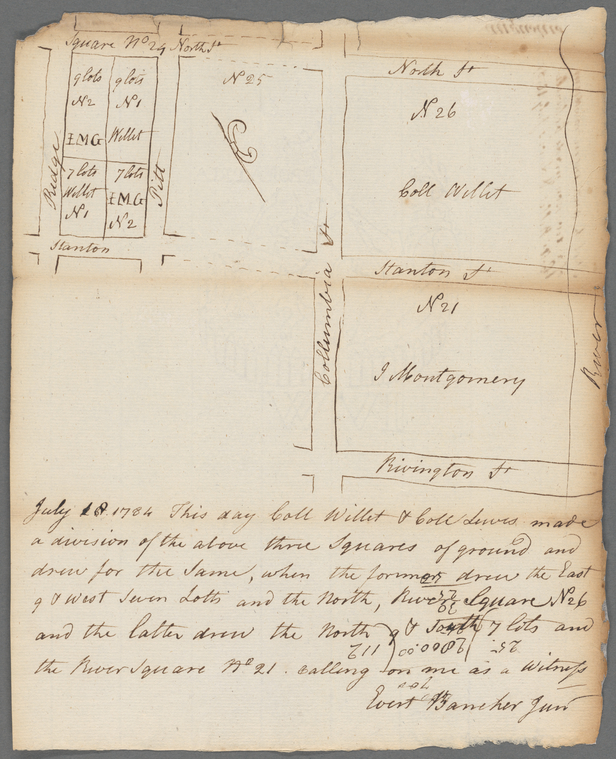 Square No 24 North St
9 lots
N2
I.M.G
9 lots
N1
Willet
7 lots
Willet
N1
7 lots
I.M.G
N2
Ridge
Pitt
Stanton
N 25
North St
N 26
Coll Willet
Collumbia St
Stanton St
N 21
J Montgomery
River
Rivington St
July 18 1784 This day Coll Willet & Coll Lewis made
a division of the above three Squares of ground and
drew for the Same, when the former drew the East
9 & West Seven Lotts and the North, River Square No 26
and the latter drew the North 9 & South 7 lots and
the River Square No 21. calling on me as a Witness
Evert Bancker Junr